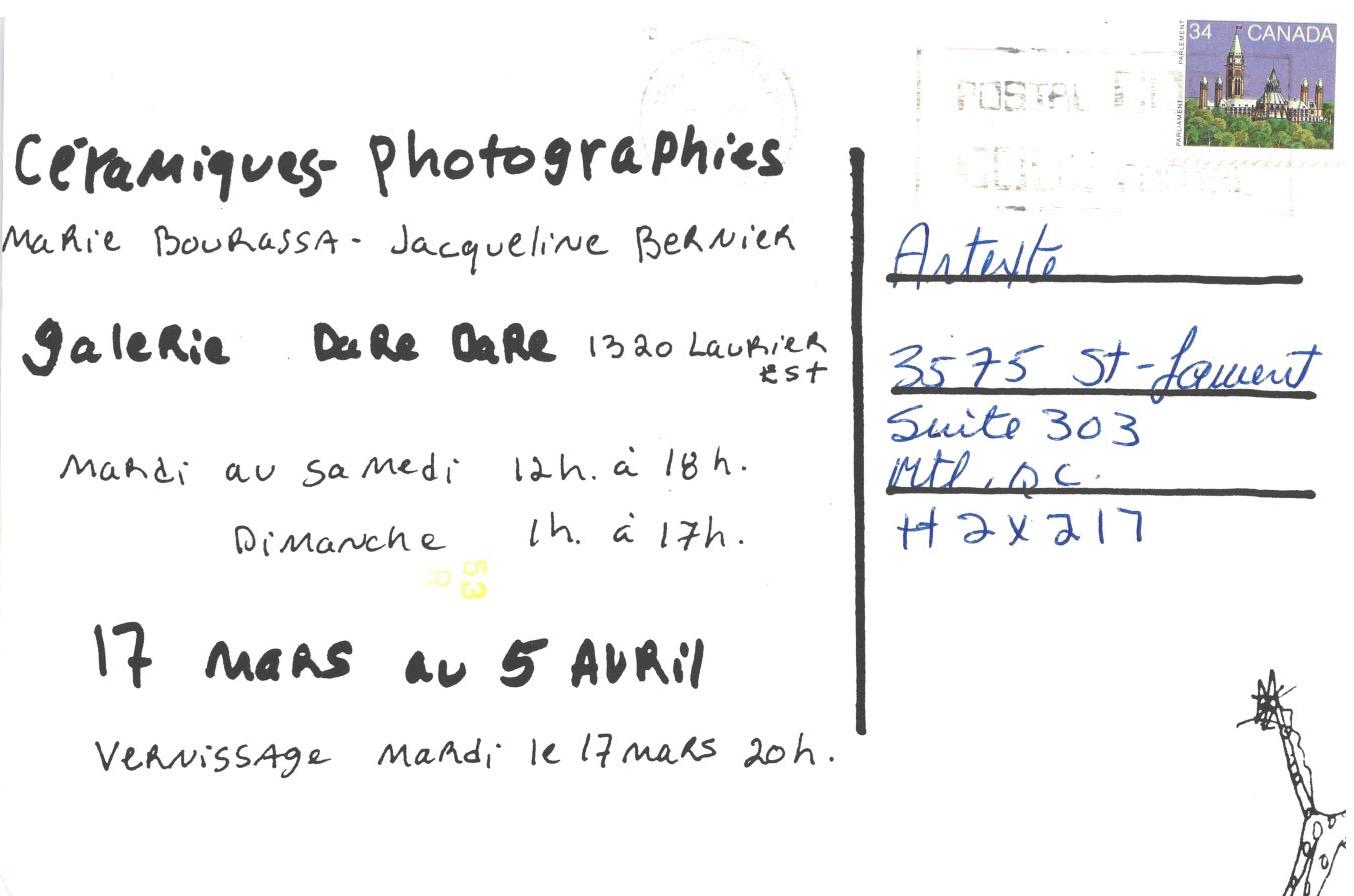 Céramiques- Photographies
Marie Bourassa - Jacqueline Bernier
galerie Dare Dare 1320 Laurier
est
Mardi au samedi 12h. à 18h.
Dimanche 1h. à 17h.
53
R
17 mars au 5 Avril
Vernissage mardi le 17 mars 20h.
34 CANADA
PARLIAMENT PARLEMENT
POSTAL
Artexte
3575 St-Laurent
Suite 303
Mtl, QC.
H2X 2T7